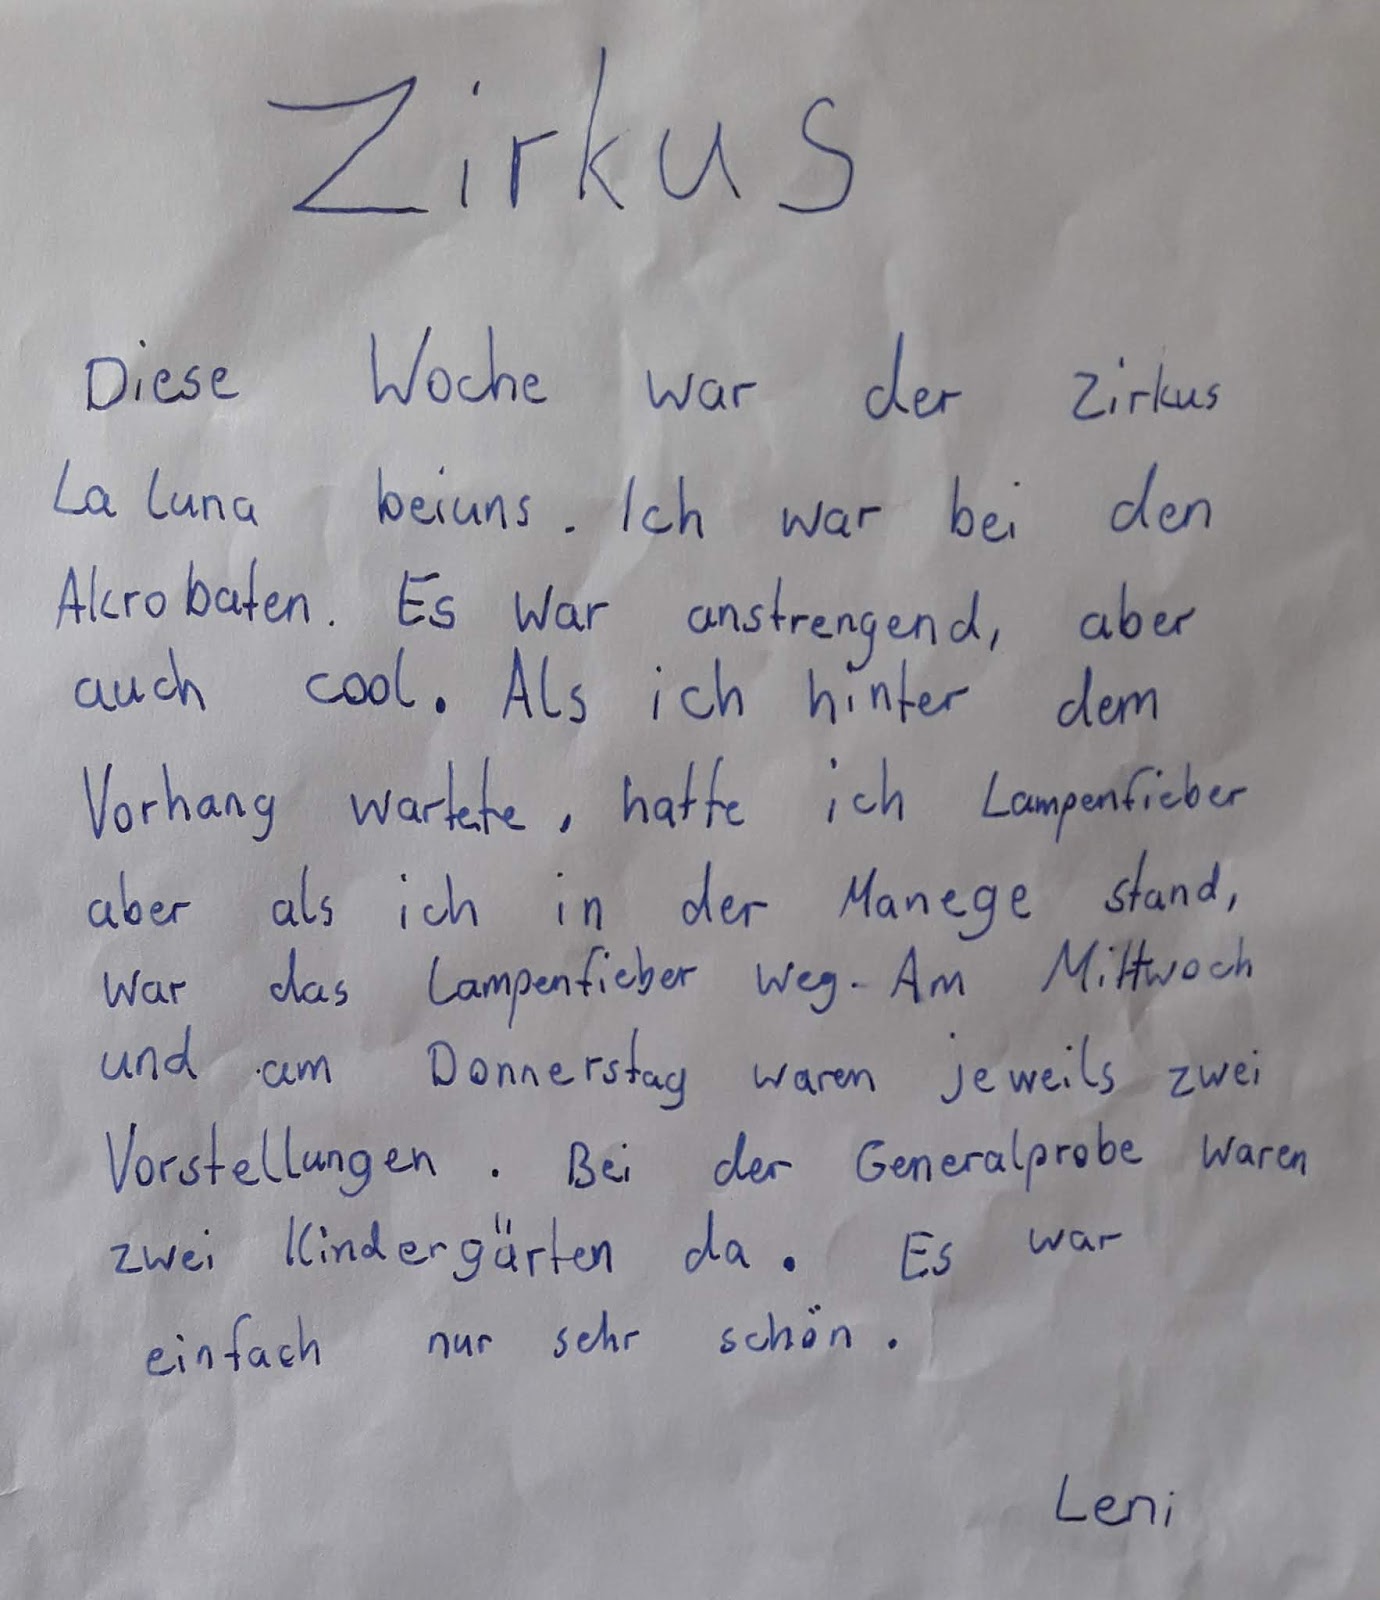 Zirkus
Diese Woche war der Zirkus
La luna beiuns. Ich war bei den
Akrobaten. Es war anstrengend, aber
auch cool. Als ich hinter dem
Vorhang wartete, hatte ich Lampenfieber
aber als ich in der Manege stand,
war das Lampenfieber weg. Am Mittwoch
und am Donnerstag waren jeweils zwei
Vorstellungen. Bei der Generalprobe waren
zwei Kindergärten da. Es war
einfach nur sehr schön.
Leni